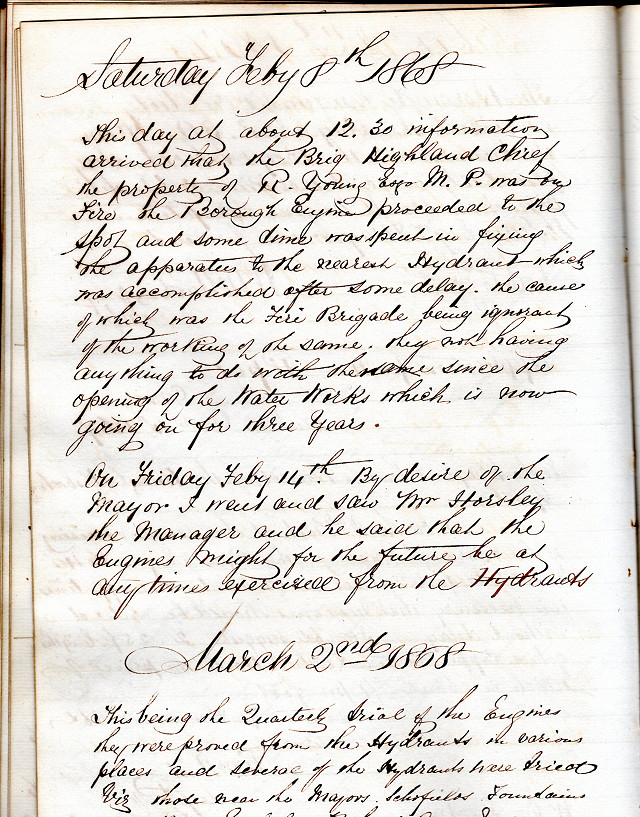 Saturday Feby 8th 1868
This day at about 12.30 information
arrived that the Brig Highland Chief
the property of R. Young Esqr M. P. was on
Fire the Borough Engine proceeded to the
spot and some time was spent in fixing
the apparatus to the nearest Hydrant which
was accomplished after some delay. the cause
of which was the Fire Brigade being ignorant
of the working of the same. they not having
anything to do with the same since the
opening of the Water Works which is now
going on for three Years.
On Friday Feby 14th. By desire of the
Mayor I went and saw Mr Horsley
the Manager and he said that the
Engines might for the future be at
any times exercised from the Hydrants
March 2nd 1868
This being the Quarterly trial of the Engines
they were proved from the Hydrants in various
places and several of the Hydrants were tried
Viz those near the Mayors, Schofields Fountains